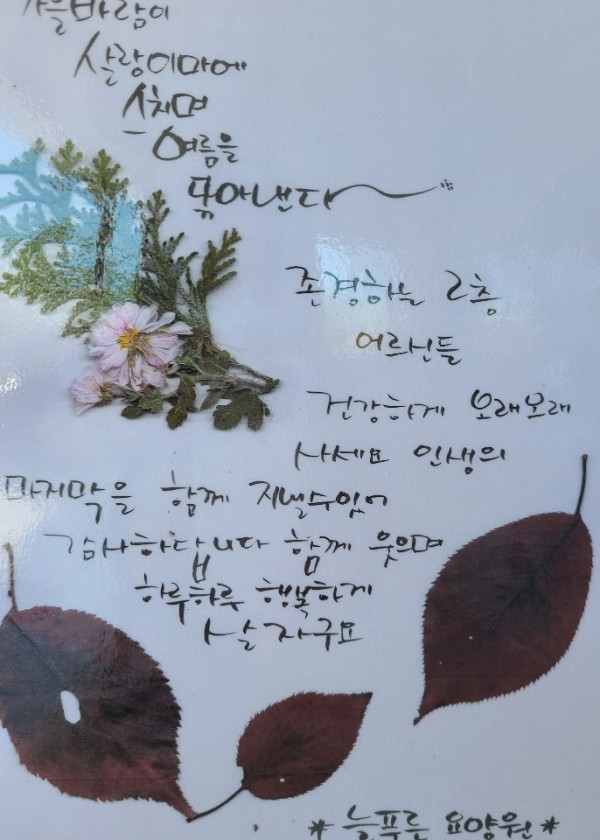 가을바람이
살랑이마에
스치며
여름을
몰아낸다
존경하는 2층
어르신들
건강하게 오래오래
사세요 인생의
마지막을 함께 지낼수있어
감사합니다 함께 웃으며
하루하루 행복하게
살자구요
*늘푸른 요양원*